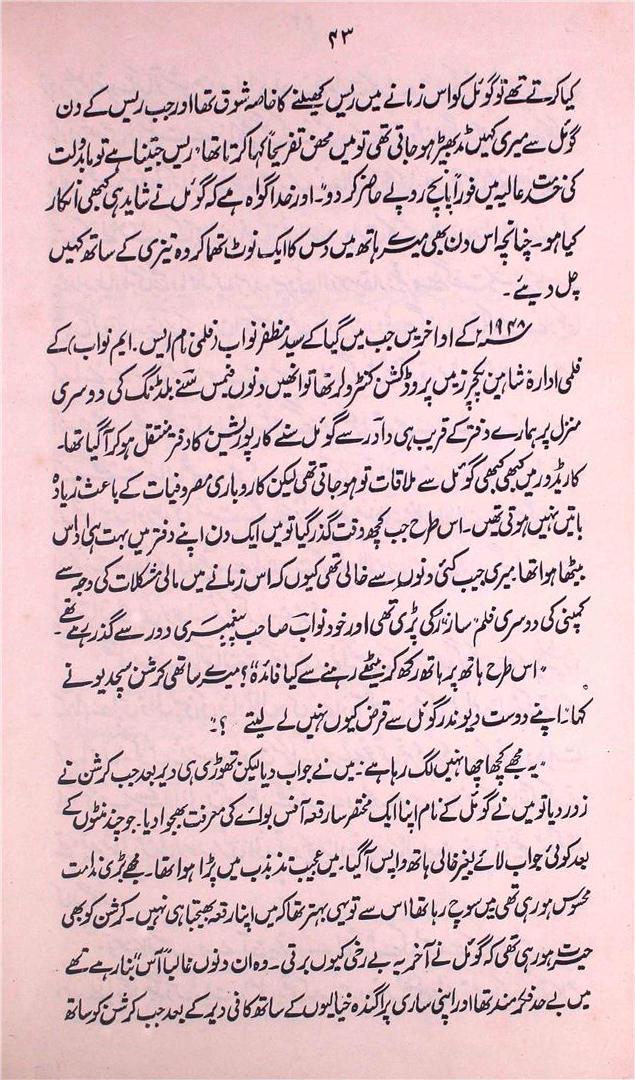 ۴۳
کیا کرتے تھے تو گوئل کو اس زمانے میں ریس کھیلنے کا خاصہ شوق تھا اور جب ریس کے دن
گوئل سے میری کہیں مڈبھیڑ ہو جاتی تھی تو میں محض تفریحاً کہا کرتا تھا "ریس جیتنا ہے تو مابدولت
کی خدمت عالیہ میں فوراً پانچ روپے حاضر کر دو"۔ اور خدا گواہ ہے کہ گوئل نے شاید ہی کبھی انکار
کیا ہو۔ چنانچہ اس دن بھی میرے ہاتھ میں دس کا ایک نوٹ تھما کر وہ تیزی کے ساتھ کہیں
چل دیئے۔
۱۹۴۸ء کے اواخر میں جب میں گیا کے سید مظفر نواب (فلمی نام ایس۔ ایم نواب) کے
فلمی ادارہ شاہین پکچرز میں پروڈکشن کنٹرولر تھا تو انھیں دنوں فیمس سنے بلڈنگ کی دوسری
منزل پر ہمارے دفتر کے قریب ہی دادر سے گوئل سنے کارپوریشن کا دفتر منتقل ہو کر آ گیا تھا۔
کاریڈور میں کبھی کبھی گوئل سے ملاقات تو ہو جاتی تھی لیکن کاروباری مصروفیات کے باعث زیادہ
باتیں نہیں ہوتی تھیں۔ اس طرح جب کچھ وقت گذر گیا تو میں ایک دن اپنے دفتر میں بہت ہی اداس
بیٹھا ہوا تھا۔ میری جیب کئی دنوں سے خالی تھی کیوں کہ اس زمانے میں مالی مشکلات کی وجہ سے
کمپنی کی دوسری فلم "ساز" رکی پڑی تھی اور خود نواب صاحب پیمبری دور سے گذر رہے تھے۔
"اس طرح ہاتھ پر ہاتھ رکھ کر بیٹھے رہنے سے کیا فائدہ"؟ میرے ساتھی کرشن سچدیو نے
کہا "اپنے دوست دیوندر گوئل سے قرض کیوں نہیں لے لیتے ؟"
"یہ مجھے کچھ اچھا نہیں لگ رہا ہے۔" میں نے جواب دیا لیکن تھوڑی ہی دیر بعد جب کرشن نے
زور دیا تو میں نے گوئل کے نام اپنا ایک مختصر سا رقعہ آفس بوائے کی معرفت بھجوا دیا۔ جو چند منٹوں کے
بعد کوئی جواب لائے بغیر خالی ہاتھ واپس آ گیا۔ میں عجیب تذبذب میں پڑا ہوا تھا۔ مجھے بڑی ندامت
محسوس ہو رہی تھی میں سوچ رہا تھا اس سے تو یہی بہتر تھا کہ میں اپنا رقعہ بھیجتا ہی نہیں۔ کرشن کو بھی
حیرت ہو رہی تھی کہ گوئل نے آخر یہ بے رخی کیوں برتی۔ وہ ان دنوں غالباً "آس" بنا رہے تھے
میں بے حد فکر مند تھا اور اپنی ساری پراگندہ خیالیوں کے ساتھ کافی دیر کے بعد جب کرشن کو ساتھ